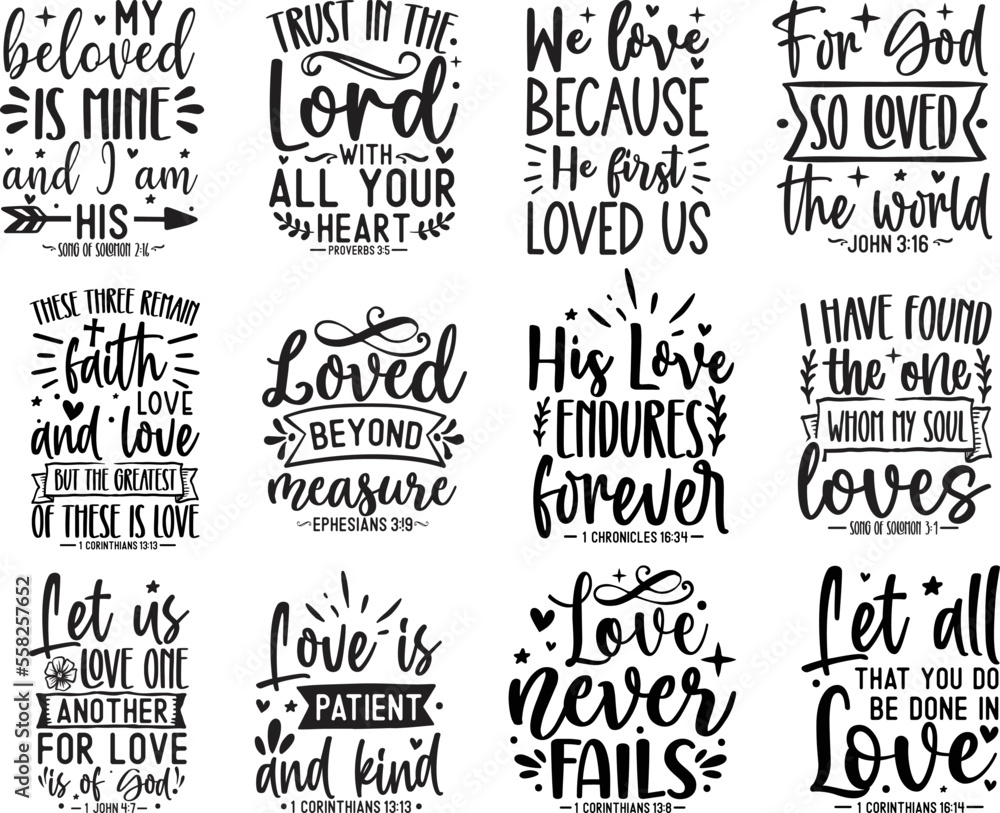 MY
beloved
IS MINE
and I am
HIS
SONG OF SOLOMON 2:16
TRUST IN THE
Lord
WITH
ALL YOUR
HEART
PROVERBS 3:5
We love
BECAUSE
He first
LOVED US
For God
SO LOVED
the world
JOHN 3:16
THESE THREE REMAIN
faith
LOVE
and love
BUT THE GREATEST
OF THESE IS LOVE
1 CORINTHIANS 13:13
Loved
BEYOND
measure
EPHESIANS 3:19
His Love
ENDURES
forever
1 CHRONICLES 16:34
I HAVE FOUND
the one
WHOM MY SOUL
loves
SONG OF SOLOMON 3:1
Let us
LOVE ONE
ANOTHER
FOR LOVE
is of God!
1 JOHN 4:7
Love is
PATIENT
and kind
1 CORINTHIANS 13:13
Love
never
FAILS
1 CORINTHIANS 13:8
Let all
THAT YOU DO
BE DONE IN
Love
1 CORINTHIANS 16:14
Adobe Stock | #558257652